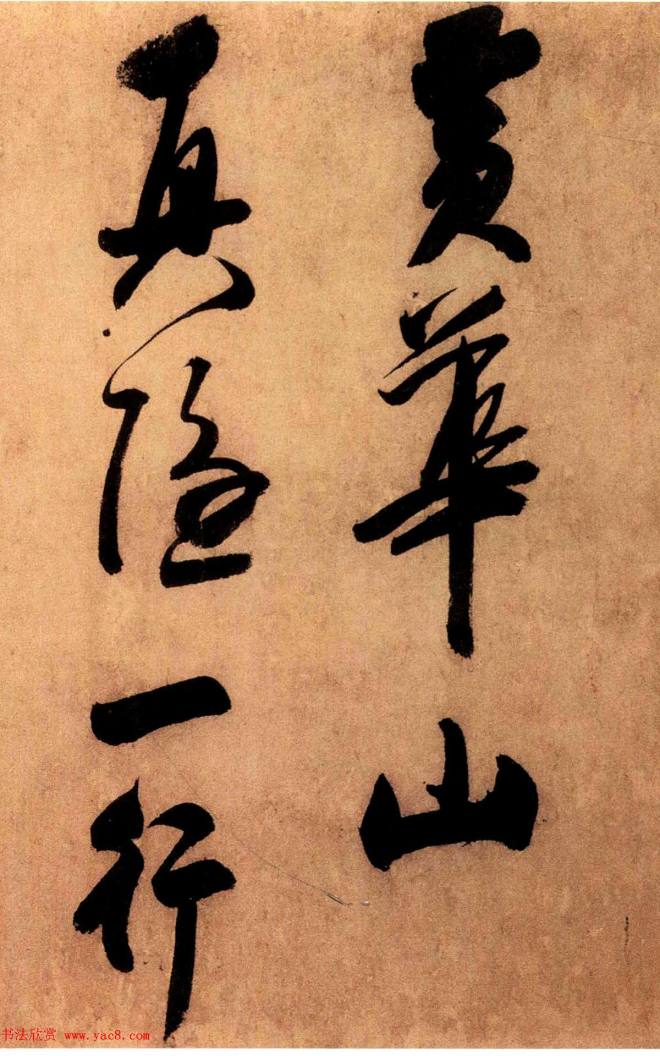 黃華山
真隱一行
书法欣赏 www.yac8.com